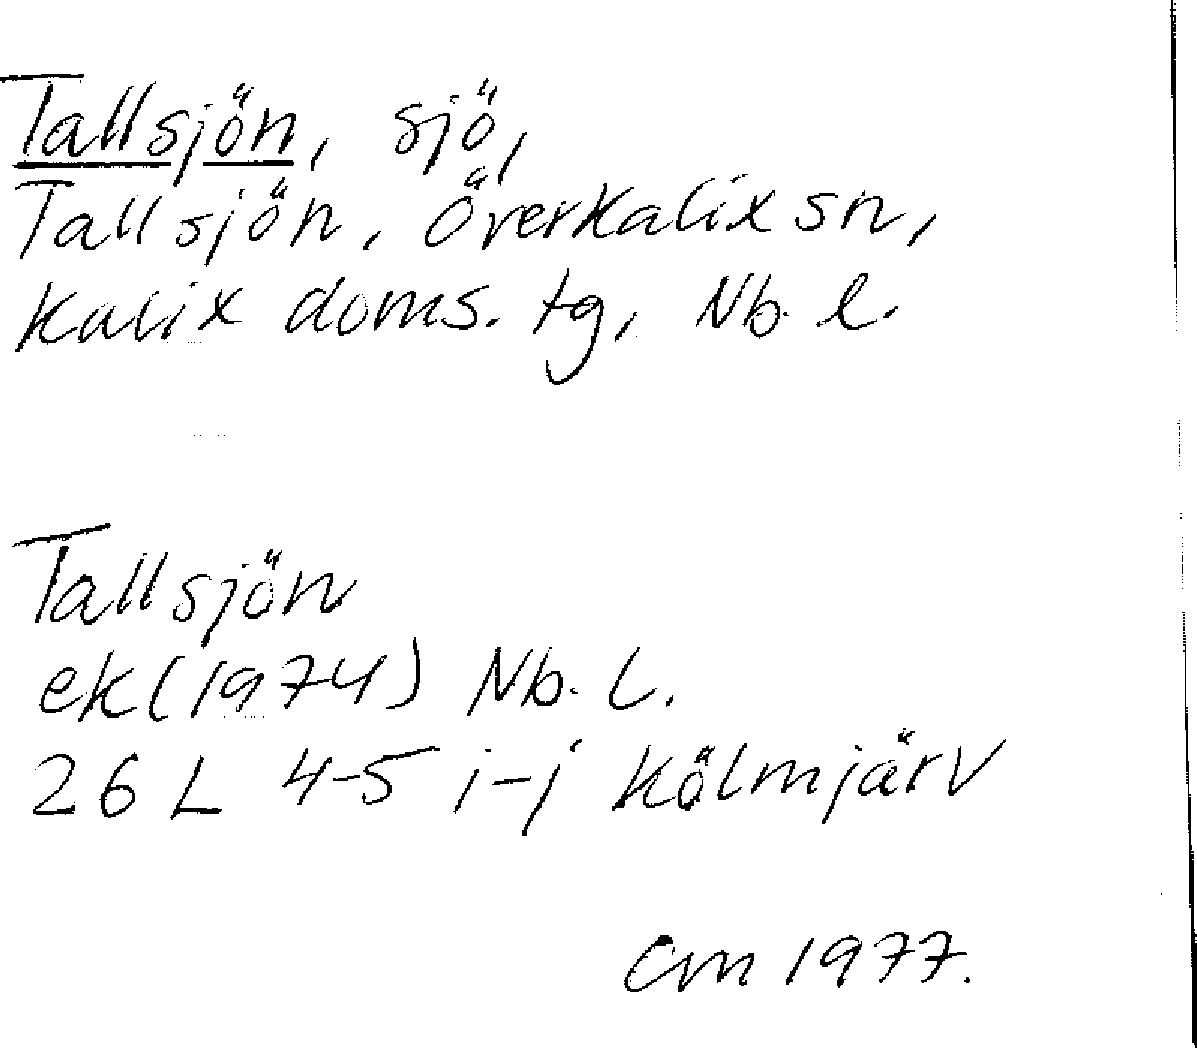 Tallsjön, sjö,
Tallsjön, Överkalix sn,
Kalix doms. tg, Nb. l.
Tallsjön
ek (1974) Nb. L.
26 L 4-5 i-j Kölmjärv
Cm 1977.